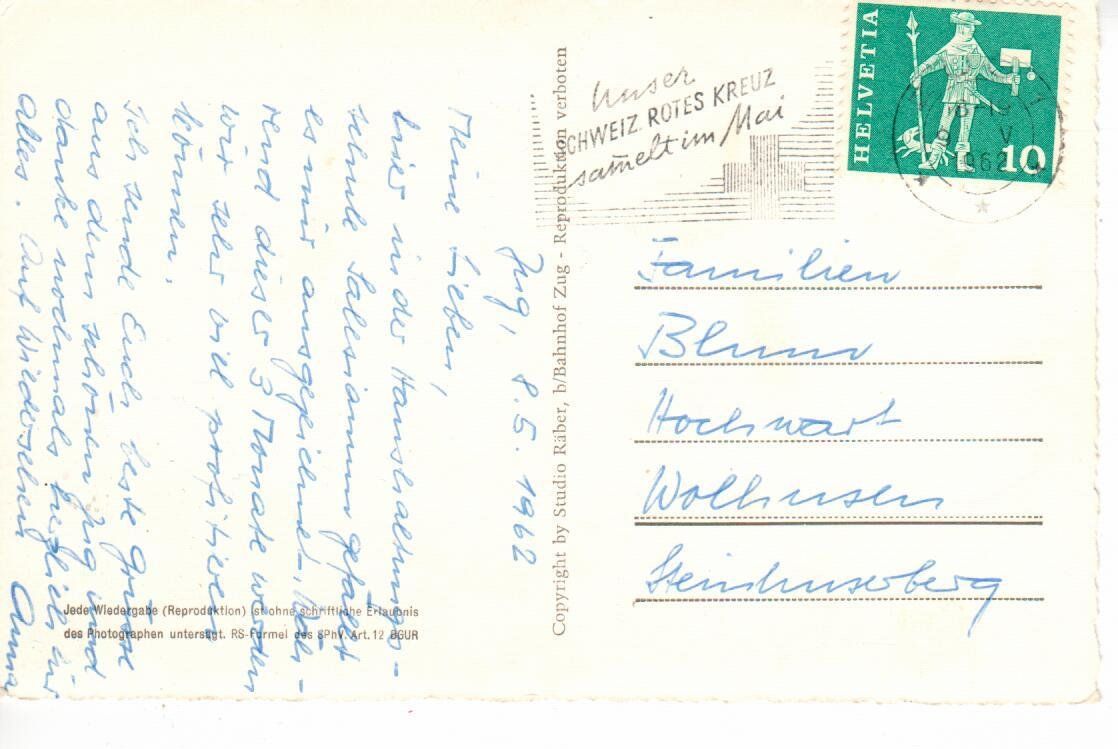 Zug, 8.5.1962
Meine Lieben,
hier in der Haushaltungs-
schule Salesianum gefällt
es mir ausgezeichnet. Wäh-
rend dieser 3 Monate werden
wir sehr viel profitieren
können.
Ich sende Euch beste Grüsse
aus dem schönen Zug und
danke nochmals herzlich für
alles. Auf Wiedersehen Anna
Jede Wiedergabe (Reproduktion) ist ohne schriftliche Erlaubnis
des Photographen untersagt. RS-Formel des SPhV. Art. 12 BGUR
Copyright by Studio Räber, b/Bahnhof Zug - Reproduktion verboten
Unser
SCHWEIZ. ROTES KREUZ
sammelt im Mai
HELVETIA
10
9 V
1962
Familien
Blum
Hochwart
Wolhusen
Steinhuserberg